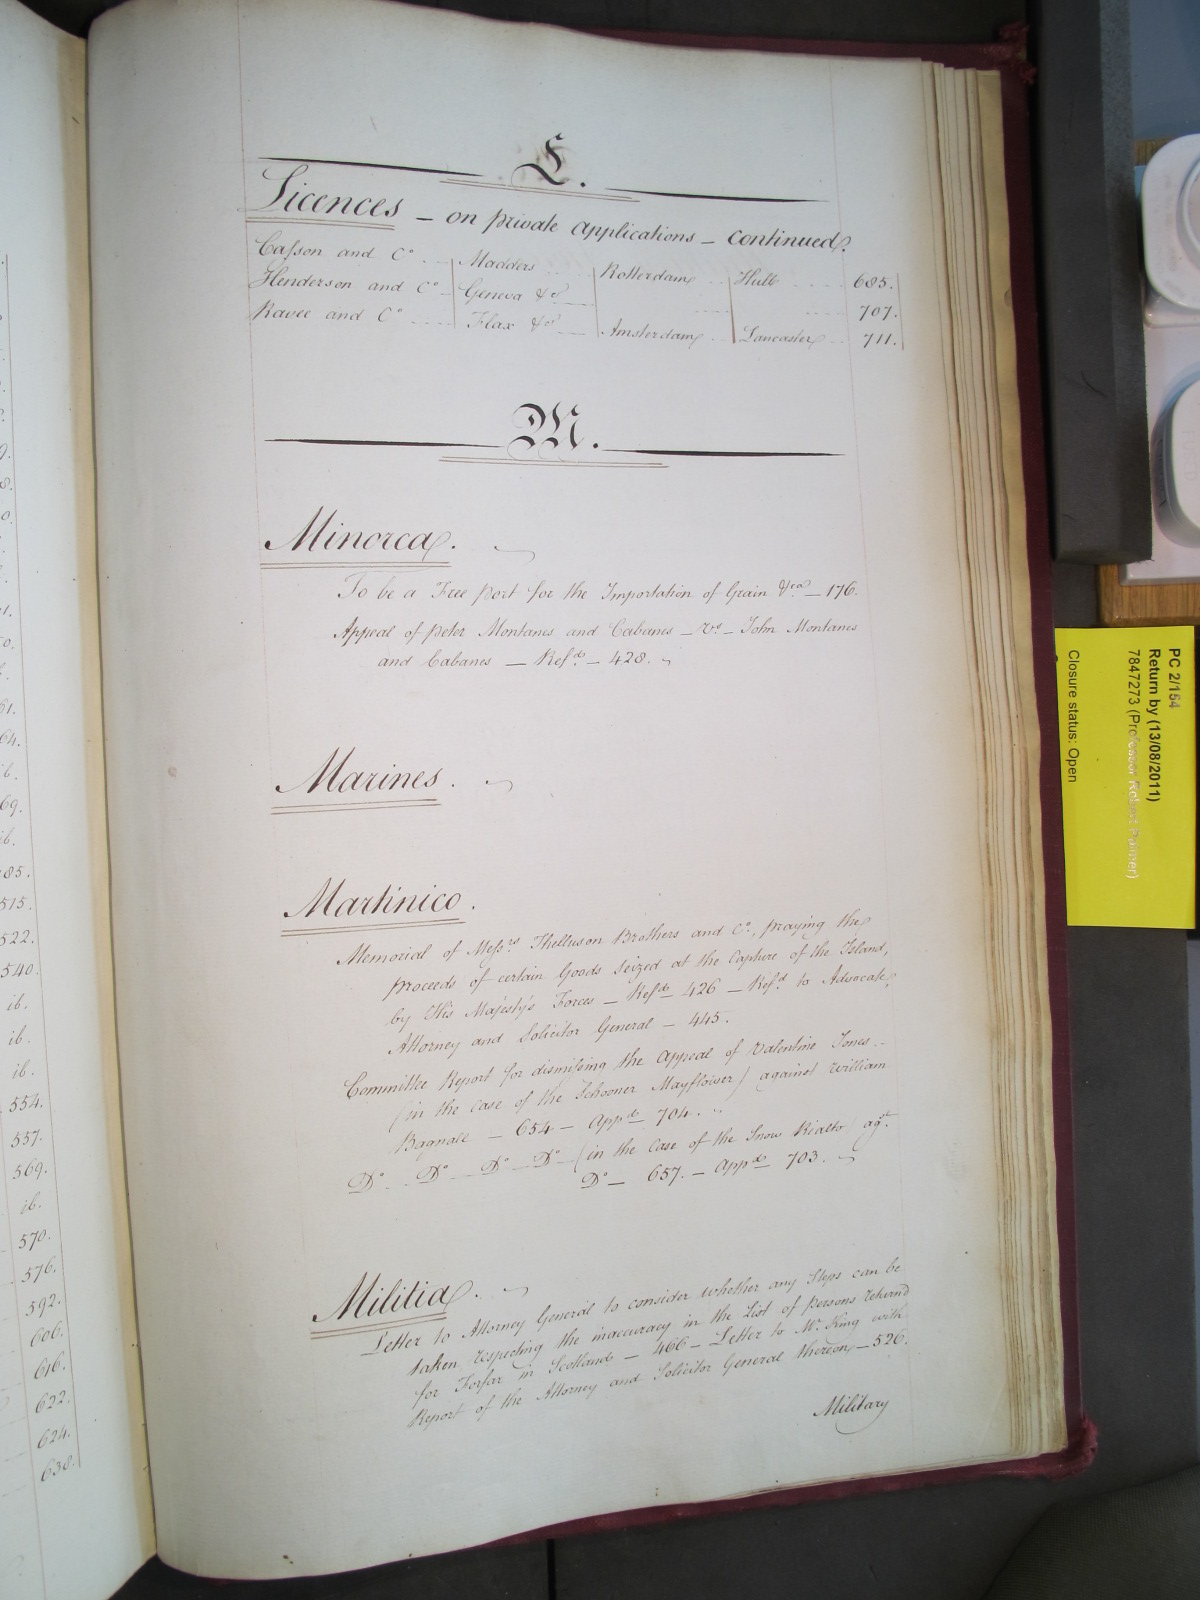 L.
Licences – on private applications – continued.
Casson and Co. Madders Rotterdam Hull 685.
Henderson and Co. Geneva &c. 707.
Ravee and Co. Flax &c. Amsterdam Lancaster 711.
M.
Minorca.
To be a Free port for the Importation of Grain &ca. – 176.
Appeal of peter Montanes and Cabanes – vs. – John Montanes
and Cabanes – Refd. – 428.
Marines.
Martinico.
Memorial of Messrs. Thelluson Brothers and Co., praying the
proceeds of certain Goods seized at the Capture of the Island,
by His Majesty's Forces – Refd. 426 – Refd. to Advocate,
Attorney and Solicitor General – 445.
Committee Report for dismissing the appeal of Valentine Jones
(in the case of the Schooner Mayflower) against William
Bagnall – 654 – Appd. 704.
Do. Do. Do. Do. (in the case of the Snow Rialto) agst.
Do. – 657. – Appd. 703.
Militia.
Letter to Attorney General to consider whether any Steps can be
taken respecting the inaccuracy in the List of persons returnd
for Forfar in Scotland – 466 – Letter to Mr. King with
Report of the Attorney and Solicitor General thereon – 526.
Military
9.
8.
0.
61.
64.
ib.
69.
ib.
85.
515.
522.
540.
ib.
ib.
ib.
554.
557.
569.
ib.
570.
576.
592.
606.
616.
622.
624.
638.
PC 2/154
Return by (13/08/2011)
7847273 (Professor Robert Palmer)
Closure status: Open